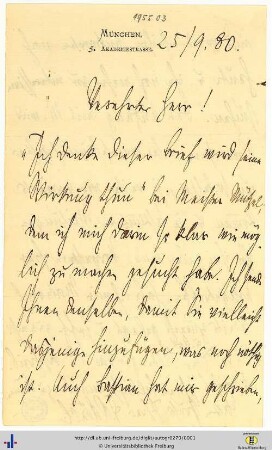 1955 03
MÜNCHEN.
5. AKADEMIESTRASSE.
25/9. 80.
Verehrter Herr!
„Ich denke dieser Brief wird seine
Wirkung thun" bei Meister Mützel,
dem ich mich darin so klar wie mög
lich zu machen gesucht habe. Ich sende
Ihnen denselben, damit Sie vielleicht
dasjenige hinzufügen, was noch nöthig
ist. Auch Bastian hat mir geschrieben,
http://dl.ub.uni-freiburg.de/diglit/autogr0273/0001
© Universitätsbibliothek Freiburg